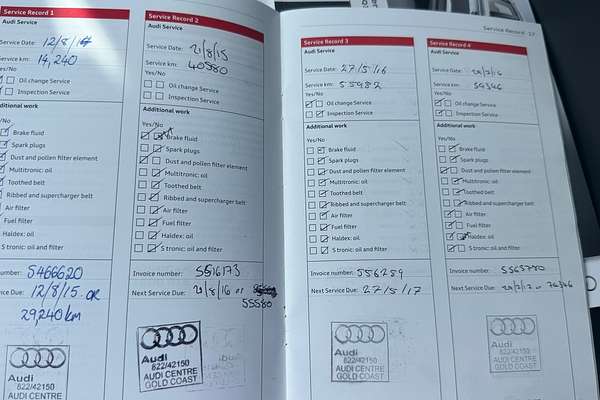 Service Record 1
Audi Service
Service Date: 12/8/14
Service km: 14,240
Yes/No
Oil change Service
Inspection Service
Additional work
Yes/No
Brake fluid
Spark plugs
Dust and pollen filter element
Multitronic: oil
Toothed belt
Ribbed and supercharger belt
Air filter
Fuel filter
Haldex: oil
S tronic: oil and filter
number: 5466620
vice Due: 12/8/15 OR
29,240 km
Audi
822/42150
AUDI CENTRE
GOLD COAST
Service Record 2
Audi Service
Service Date: 21/8/15
Service km: 40580
Yes/No
Oil change Service
Inspection Service
Additional work
Yes/No
Brake fluid
Spark plugs
Dust and pollen filter element
Multitronic: oil
Toothed belt
Ribbed and supercharger belt
Air filter
Fuel filter
Haldex: oil
S tronic: oil and filter
Invoice number: 5516173
Next Service Due: 21/8/16 or
55580
Audi
822/42150
AUDI CENTRE
GOLD COAST
Service Record 3
Audi Service
Service Date: 27/5/16
Service km: 55982
Yes/No
Oil change Service
Inspection Service
Additional work
Yes/No
Brake fluid
Spark plugs
Dust and pollen filter element
Multitronic: oil
Toothed belt
Ribbed and supercharger belt
Air filter
Fuel filter
Haldex: oil
S tronic: oil and filter
Invoice number: 556289
Next Service Due: 27/5/17
Audi
822/42150
AUDI CENTRE
GOLD COAST
Service Record 17
Service Record 4
Audi Service
Service Date:
Service km:
Yes/No
Oil change Service
Inspection Service
Additional work
Yes/No
Brake fluid
Spark plugs
Dust and pollen filter element
Multitronic: oil
Toothed belt
Ribbed and supercharger belt
Air filter
Fuel filter
Haldex: oil
S tronic: oil and filter
Invoice number:
Next Service Due:
Audi
822/42150
AUDI CENTRE
GOLD COAST